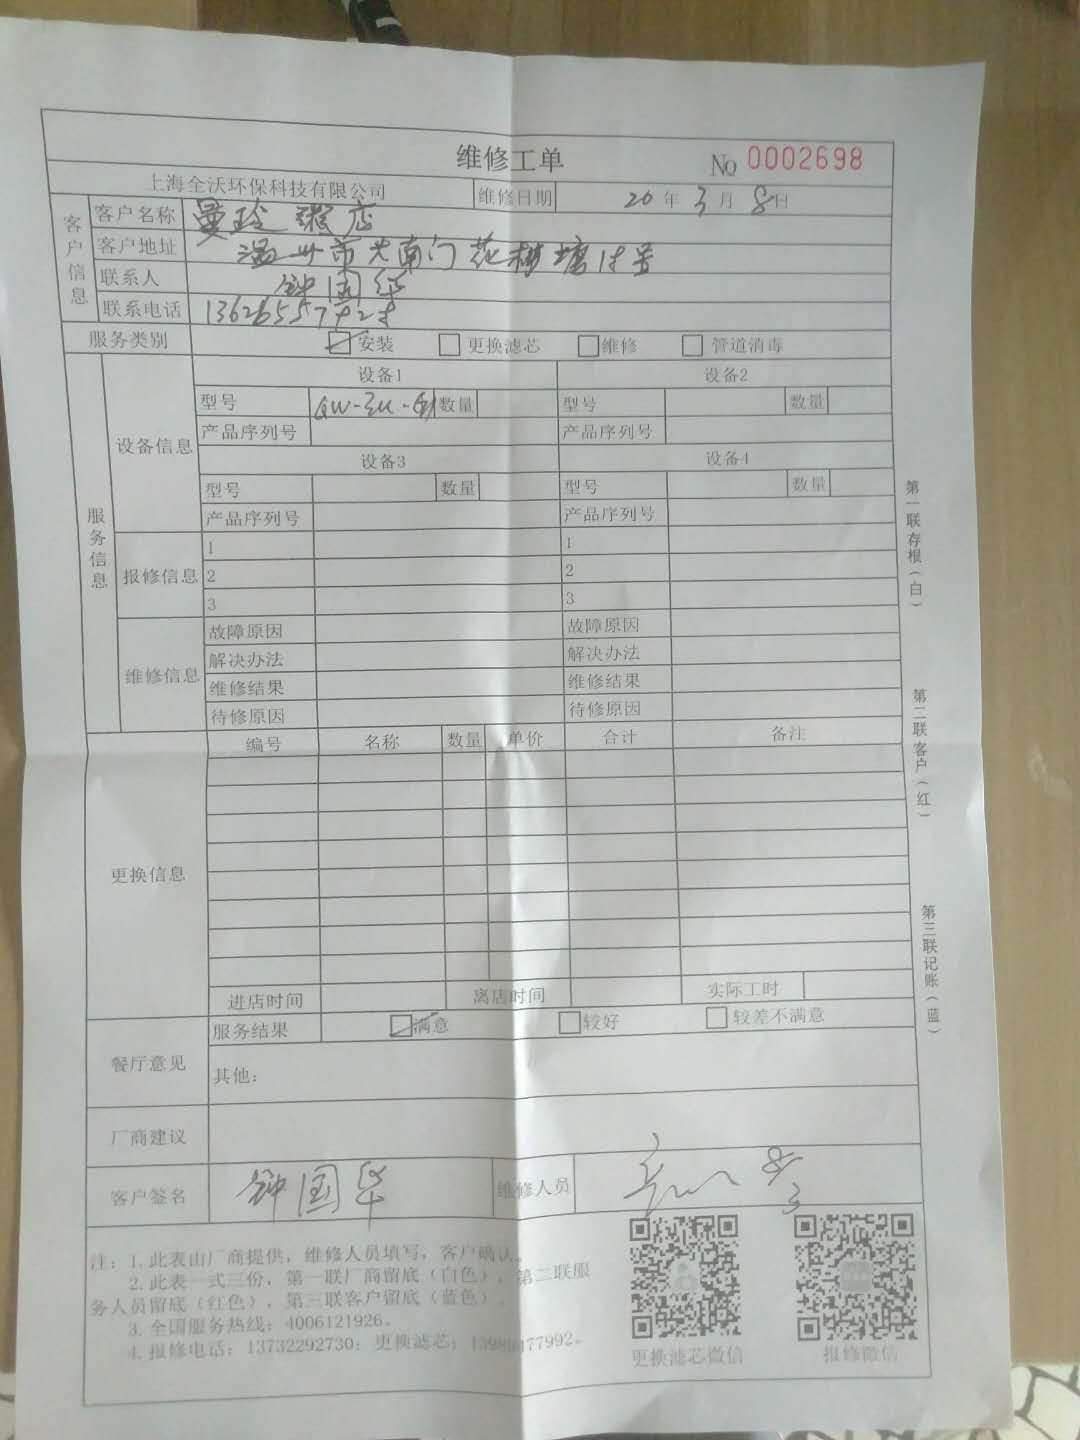 维修工单 No 0002698
上海全沃环保科技有限公司 维修日期 20年3月8日
客户信息
客户名称 曼玲粥店
客户地址 温州市大南门花柳塘18号
联系人 钟国华
联系电话
服务类别 安装 更换滤芯 维修 管道消毒
服务信息
设备信息
设备1 设备2
型号 数量 型号 数量
产品序列号 产品序列号
设备3 设备4
型号 数量 型号 数量
产品序列号 产品序列号
报修信息
1 1
2 2
3 3
维修信息
故障原因 故障原因
解决办法 解决办法
维修结果 维修结果
待修原因 待修原因
更换信息
编号 名称 数量 单价 合计 备注
进店时间 离店时间 实际工时
餐厅意见
服务结果 满意 较好 较差不满意
其他：
厂商建议
客户签名 钟国华 维修人员
注：1.此表由厂商提供，维修人员填写，客户确认。
2.此表一式三份，第一联厂商留底（白色），第二联服
务人员留底（红色），第三联客户留底（蓝色）。
3.全国服务热线：4006121926。
4.报修电话：13732292730；更换滤芯：
更换滤芯微信 报修微信
第一联存根（白）
第二联客户（红）
第三联记账（蓝）